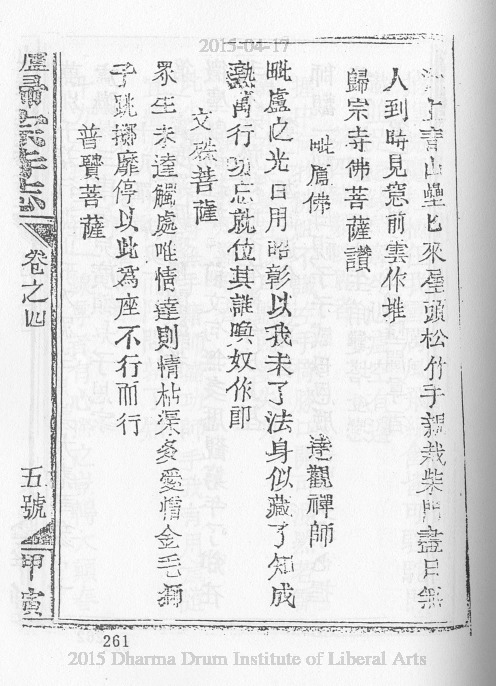 2015-04-17
上青山疊匕來屋頭松竹手親栽柴門盡日無
人到時見窓前雲作堆
歸宗寺佛菩薩讚
毗盧佛　達觀禪師
毗盧之光日用昭彰以我未了法身似藏了知成
熟萬行功忘就位其誰喚奴作郎
文殊菩薩
眾生未達觸處唯情達則情枯渠多愛憎金毛獅
子跳擲靡停以此為座不行而行
普賢菩薩
廬歸宗寺志　卷之四　五號　甲寅
261
2015 Dharma Drum Institute of Liberal Arts